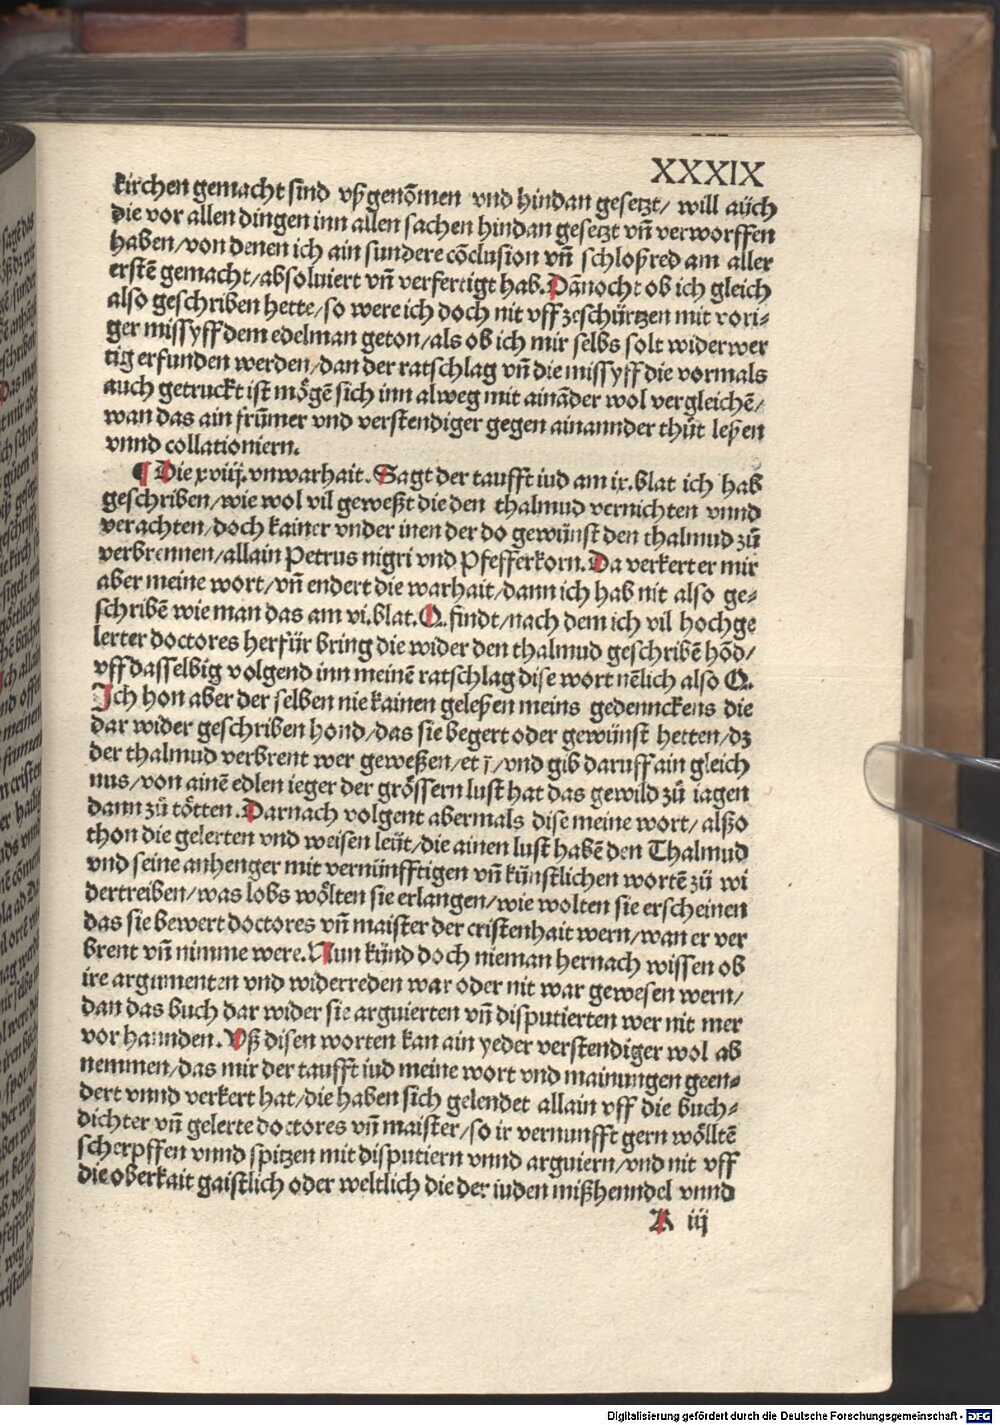 XXXIX
kirchen gemacht sind vß genõmen vnd hindan gesetzt/ will aüch
die vor allen dingen inn allen sachen hindan gesetzt vñ verworffen
haben/von denen ich ain sundere cõclusion vñ schloßred am aller
erstẽ gemacht/absoluiert vñ verfertigt hab. Dãnocht ob ich gleich
also geschriben hette/so were ich doch nit vff zeschürtzen mit vori⸗
ger missyff dem edelman geton/als ob ich mir selbs solt widerwer
tig erfunden werden/dan der ratschlag vñ die missyff die vormals
auch getruckt ist mögẽ sich inn alweg mit ainãder wol vergleichẽ/
wan das ain frũmer vnd verstendiger gegen ainannder thůt leßen
vnnd collationiern.
¶ Die xviij. vnwarhait. Sagt der taufft iud am ix. blat ich hab
geschriben/wie wol vil geweßt die den thalmud vernichten vnnd
verachten/doch kainer vnder inen der do gewünst den thalmud zů
verbrennen/allain Petrus nigri vnd Pfefferkorn. Da verkert er mir
aber meine wort/vñ endert die warhait/dann ich hab nit also ge⸗
schribẽ wie man das am vi. blat. Q. findt/nach dem ich vil hochge
lerter doctores herfür bring die wider den thalmud geschribẽ hõd/
vff dasselbig volgend inn meinẽ ratschlag dise wort nẽlich also Q.
Ich hon aber der selben nie kainen geleßen meins gedennckens die
dar wider geschriben hond/das sie begert oder gewünst hetten/dz
der thalmud verbrent wer geweßen/et c̄/vnd gib daruff ain gleich
nus/von ainẽ edlen ieger der grössern lust hat das gewild zů iagen
dann zů tötten. Darnach volgent abermals dise meine wort/alßo
thon die gelerten vnd weisen leüt/die ainen lust habẽ den Thalmud
vnd seine anhenger mit vernünfftigen vñ künstlichen wortẽ zů wi
dertreiben/was lobs wölten sie erlangen/wie wolten sie erscheinen
das sie bewert doctores vñ maister der cristenhait wern/wan er ver
brent vñ nimme were. Nun künd doch nieman hernach wissen ob
ire argumenten vnd widerreden war oder nit war gewesen wern/
dan das buch dar wider sie arguierten vñ disputierten wer nit mer
vor hannden. Vß disen worten kan ain yeder verstendiger wol ab
nemmen/das mir der taufft iud meine wort vnd mainungen geen⸗
dert vnnd verkert hat/die haben sich gelendet allain vff die buch⸗
dichter vñ gelerte doctores vñ maister/so ir vernunfft gern wölltẽ
scherpffen vnnd spitzen mit disputiern vnnd arguiern/vnd nit vff
die oberkait gaistlich oder weltlich die der iuden mißhenndel vnnd
A iij
Digitalisierung gefördert durch die Deutsche Forschungsgemeinschaft - DFG